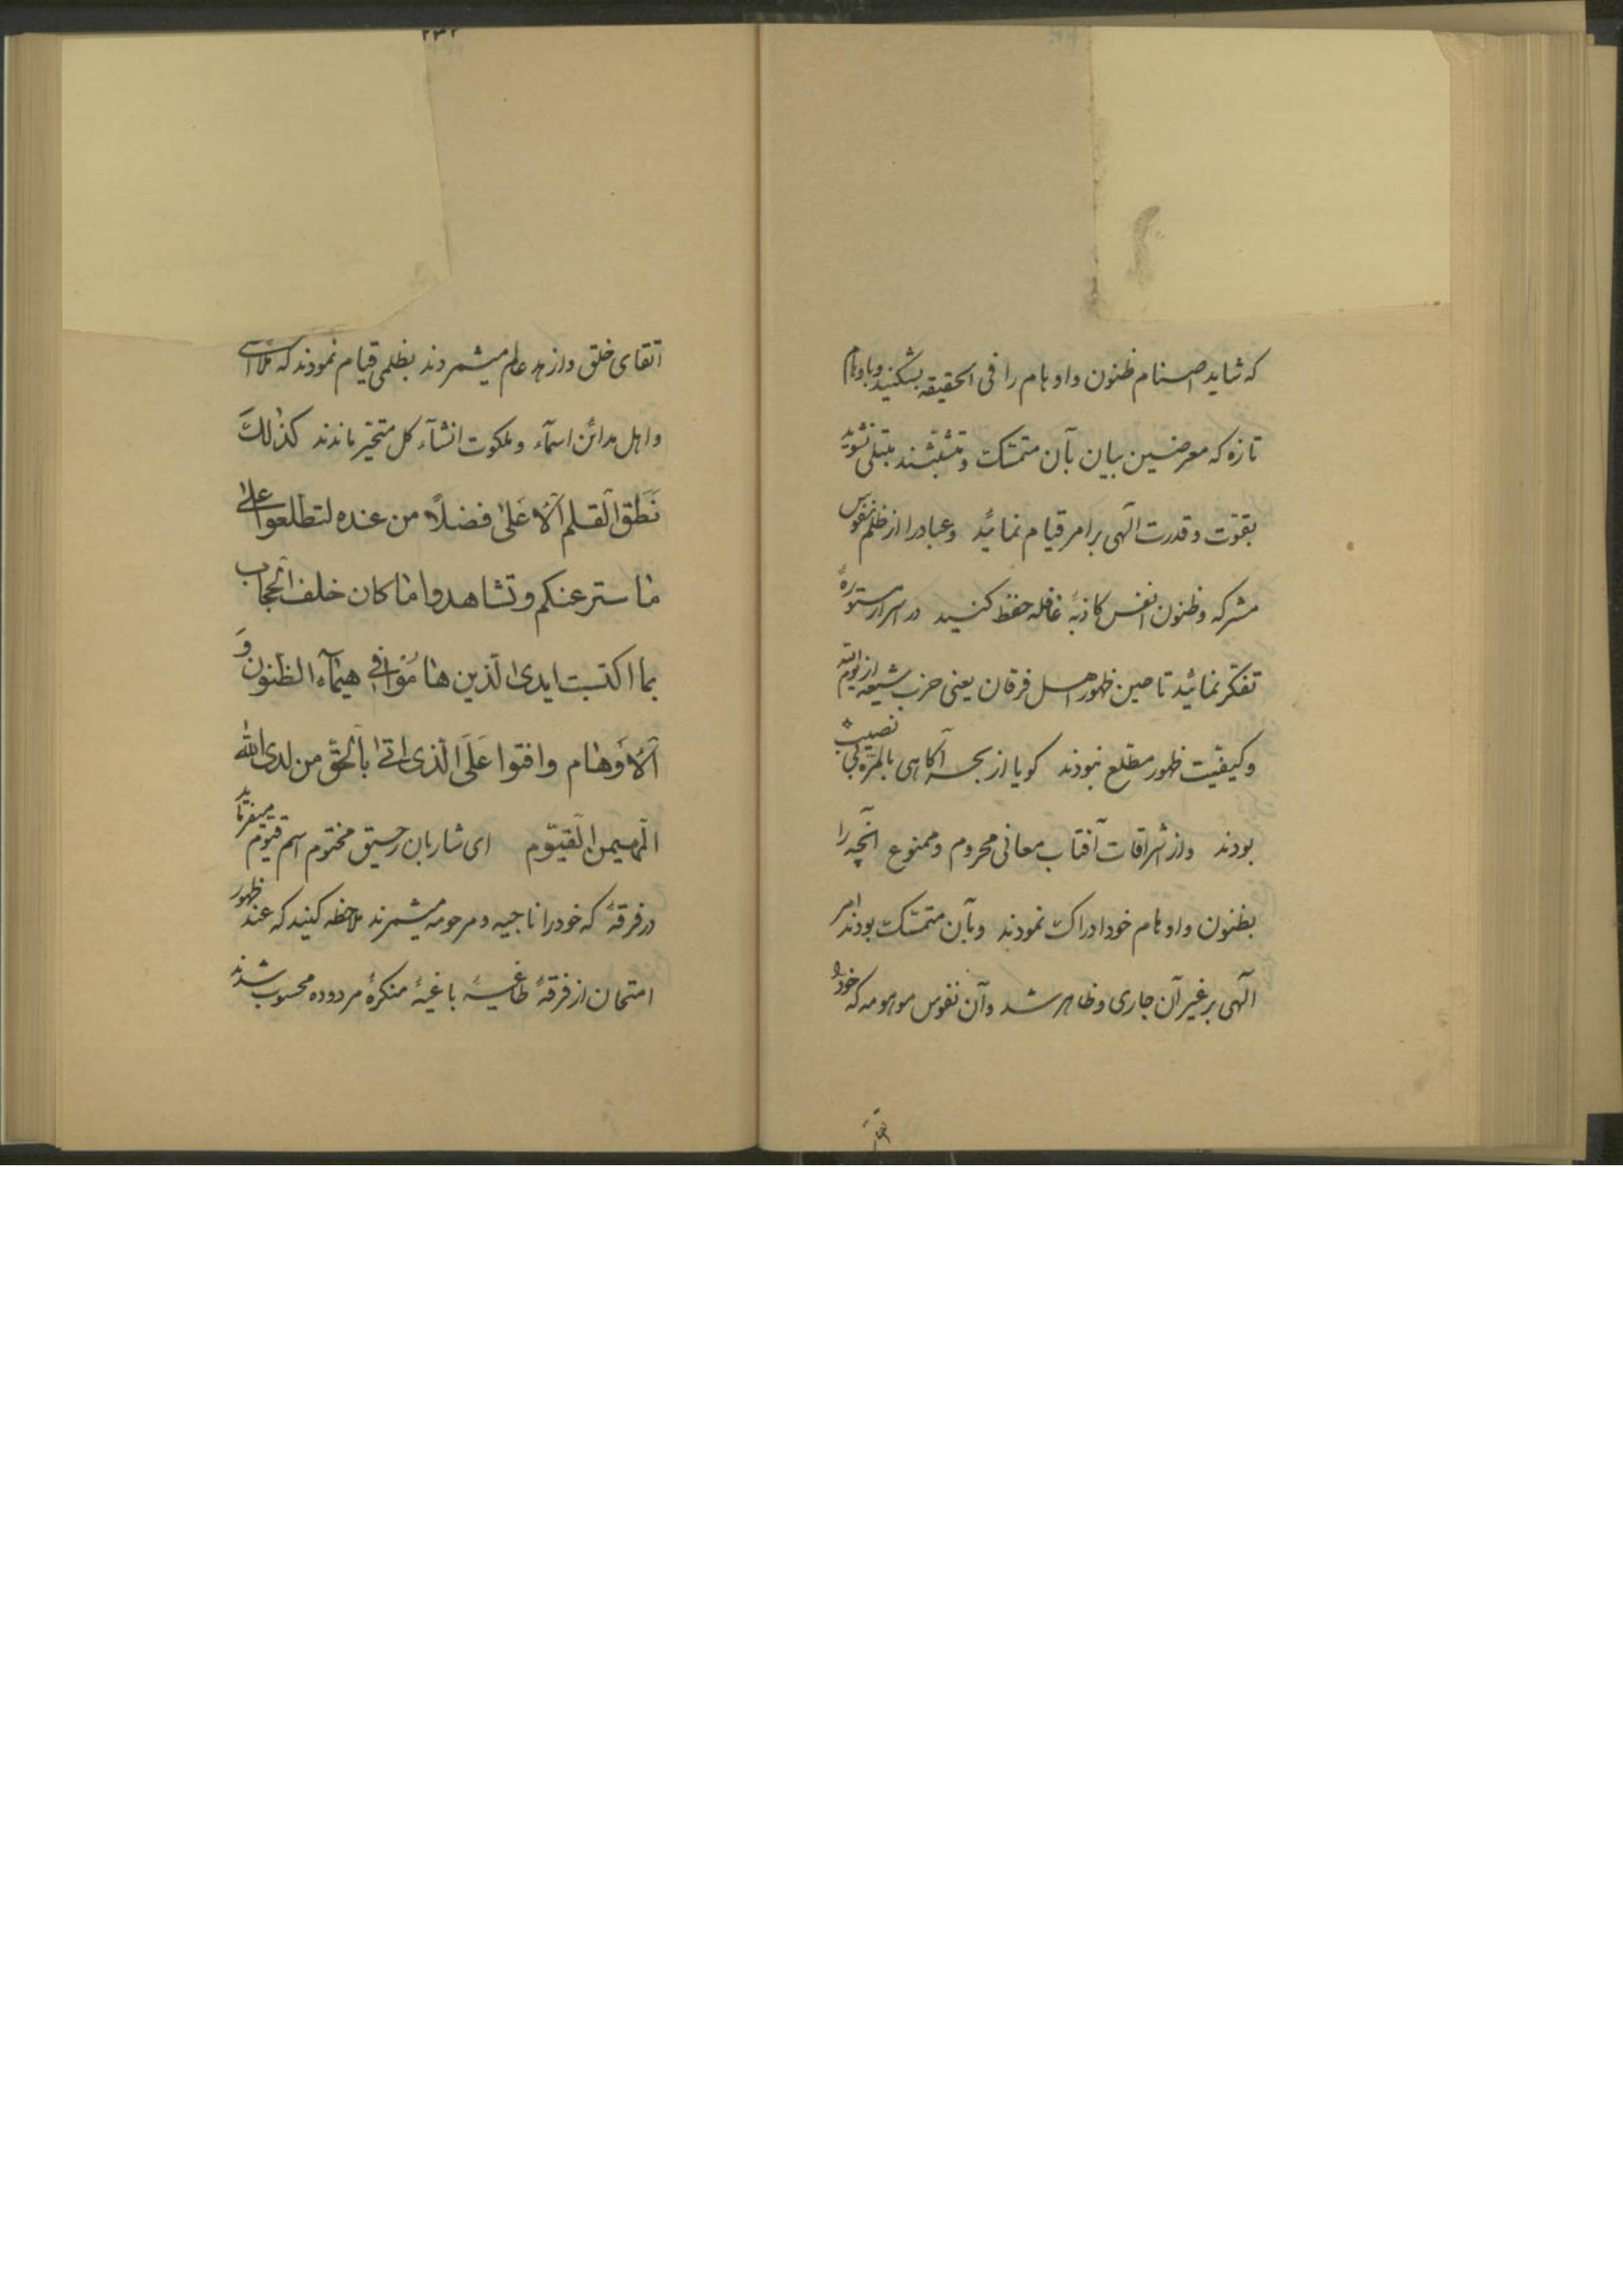 که شاید اصنام ظنون و اوهام را فی الحقیقه بشکنید و باوهام
تازه که معرضین بیان بآن متمسّک و متشبّثند مبتلی نشوید
بقوّت و قدرت الهی بر امر قیام نمائید و عباد را از ظلم نفوس
مشرکه و ظنون انفس کاذبهٔ غافله حفظ کنید در اسرار مستورهٔ
تفکّر نمائید تا حین ظهور اهل فرقان یعنی حزب شیعه از یوم الله
و کیفیّت ظهور مطّلع نبودند کویا از بحر آکاهی بالمرّه بی نصیب
بودند و از اشراقات آفتاب معانی محروم و ممنوع آنچه را
بظنون و اوهام خود ادراک نمودند و بآن متمسّک بودند امر
الهی بر غیر آن جاری و ظاهر شد و آن نفوس موهومه که خود را
۲۳۲
اتقای خلق و ازهد عالم میشمردند بظلمی قیام نمودند که ملأ اسمی
و اهل مدائن اسمآء و ملکوت انشآء کل متحیّر ماندند کذلکَ
نَطَقَ القلم الاَعَلیٰ فضلاً من عنده لتطلعوا علیٰ
ما ستر عنکم و تشاهدوا ما کان خلف الحجاب
بما اکتسبت ایدی الذین هامُوا فی هیمآء الظنون وَ
الاَوهام و افتوا عَلَی الّذی اتیٰ بالحقّ من لدی الله
المهیمن القیّوم ای شاربان رحیق مختوم اسم قیّوم میفرماید
در فرقهٔ که خود را ناجیه و مرحومه میشمرند ملاحظه کنید که عند ظهور
امتحان از فرقهٔ طاغیهٔ باغیهٔ منکرهٔ مردوده محسوب شدند